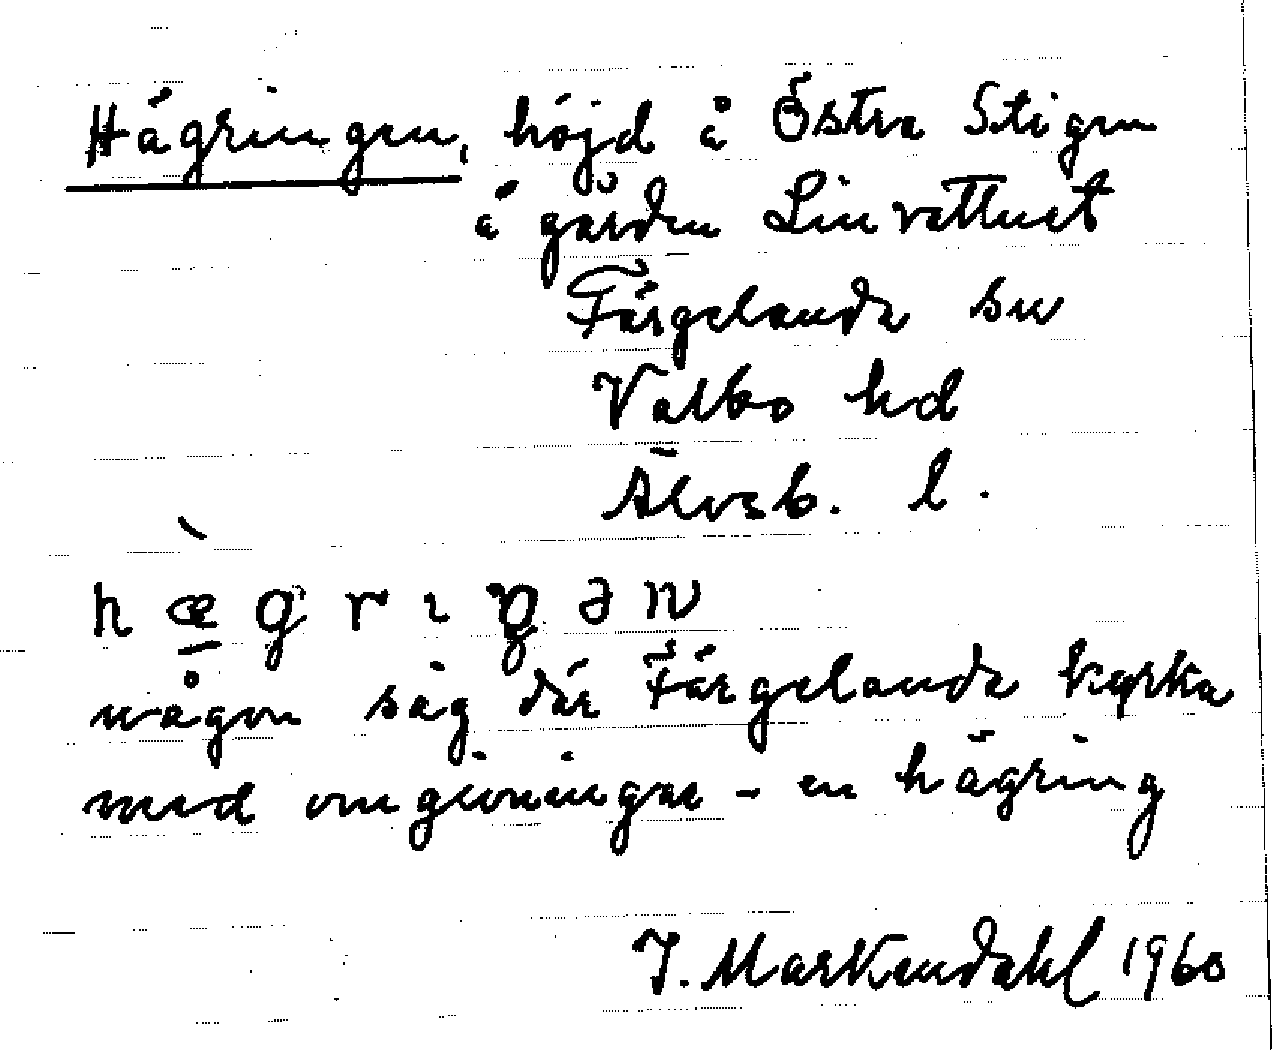 Hägringen, höjd å Östra Stigen
å gården Linvattnet
Färgelanda sn
Valbo hd
Älvsb. l.
hæ̀grıgən
någon såg där Färgelanda kyrka
med omgivningar - en hägring
J. Markendahl 1960